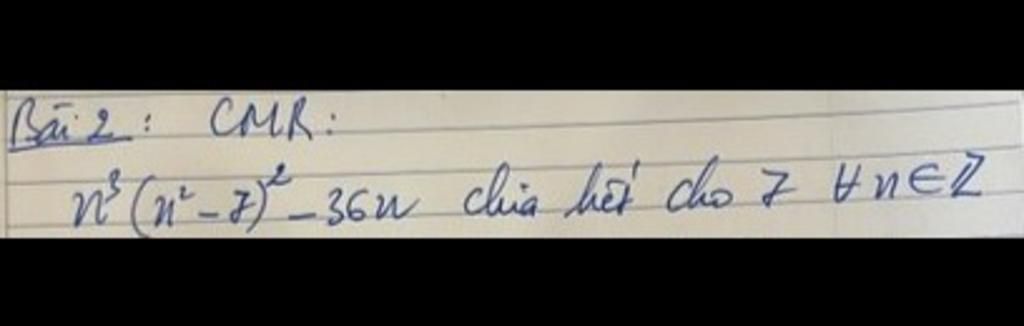 Bài 2: CMR:
n³(n²-7)² - 36n chia hết cho 7 ∀n∈ℤ